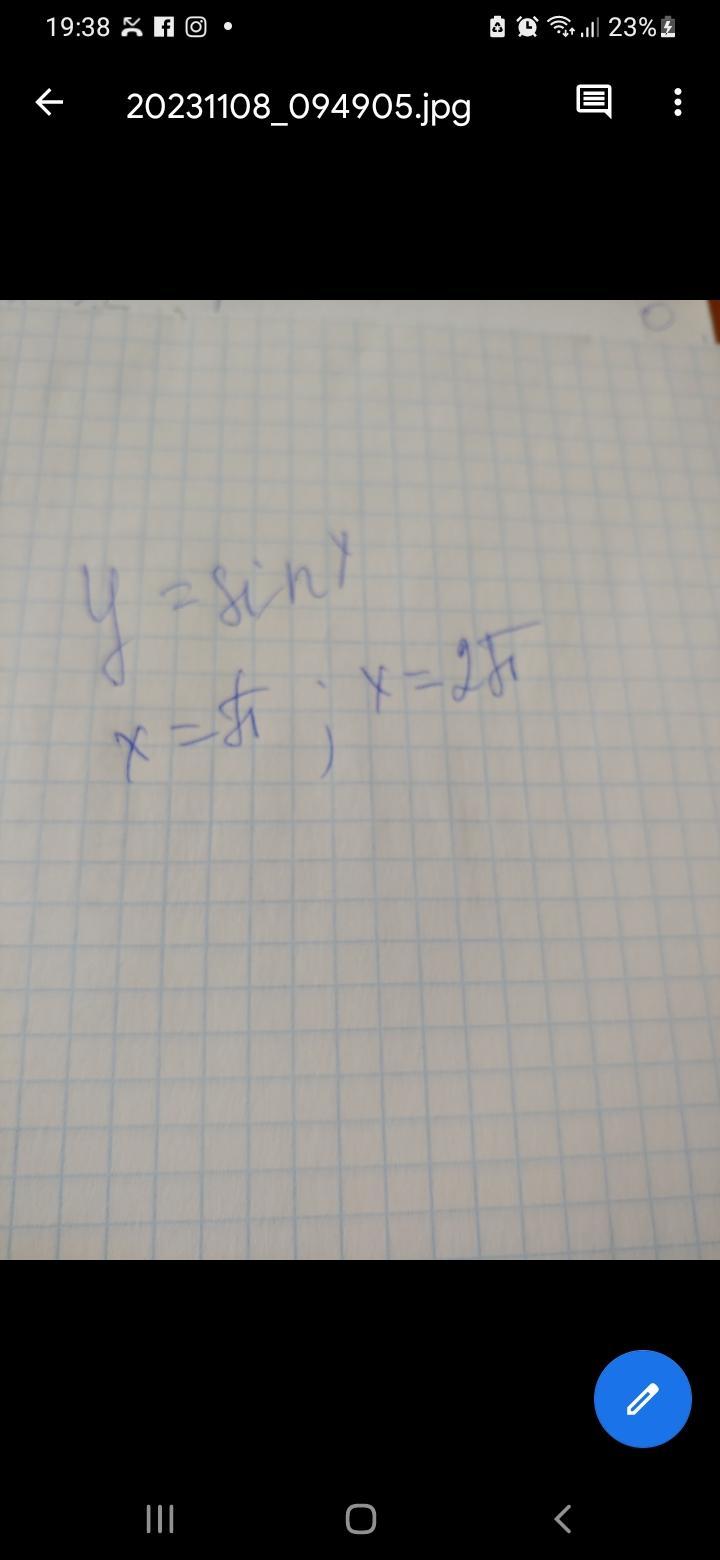 19:38 23%
20231108_094905.jpg
y = sin x
x = π ; x = 2π